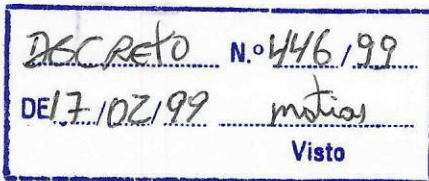 DECRETO N.º 446/99
DE 17/02/99 matias
Visto